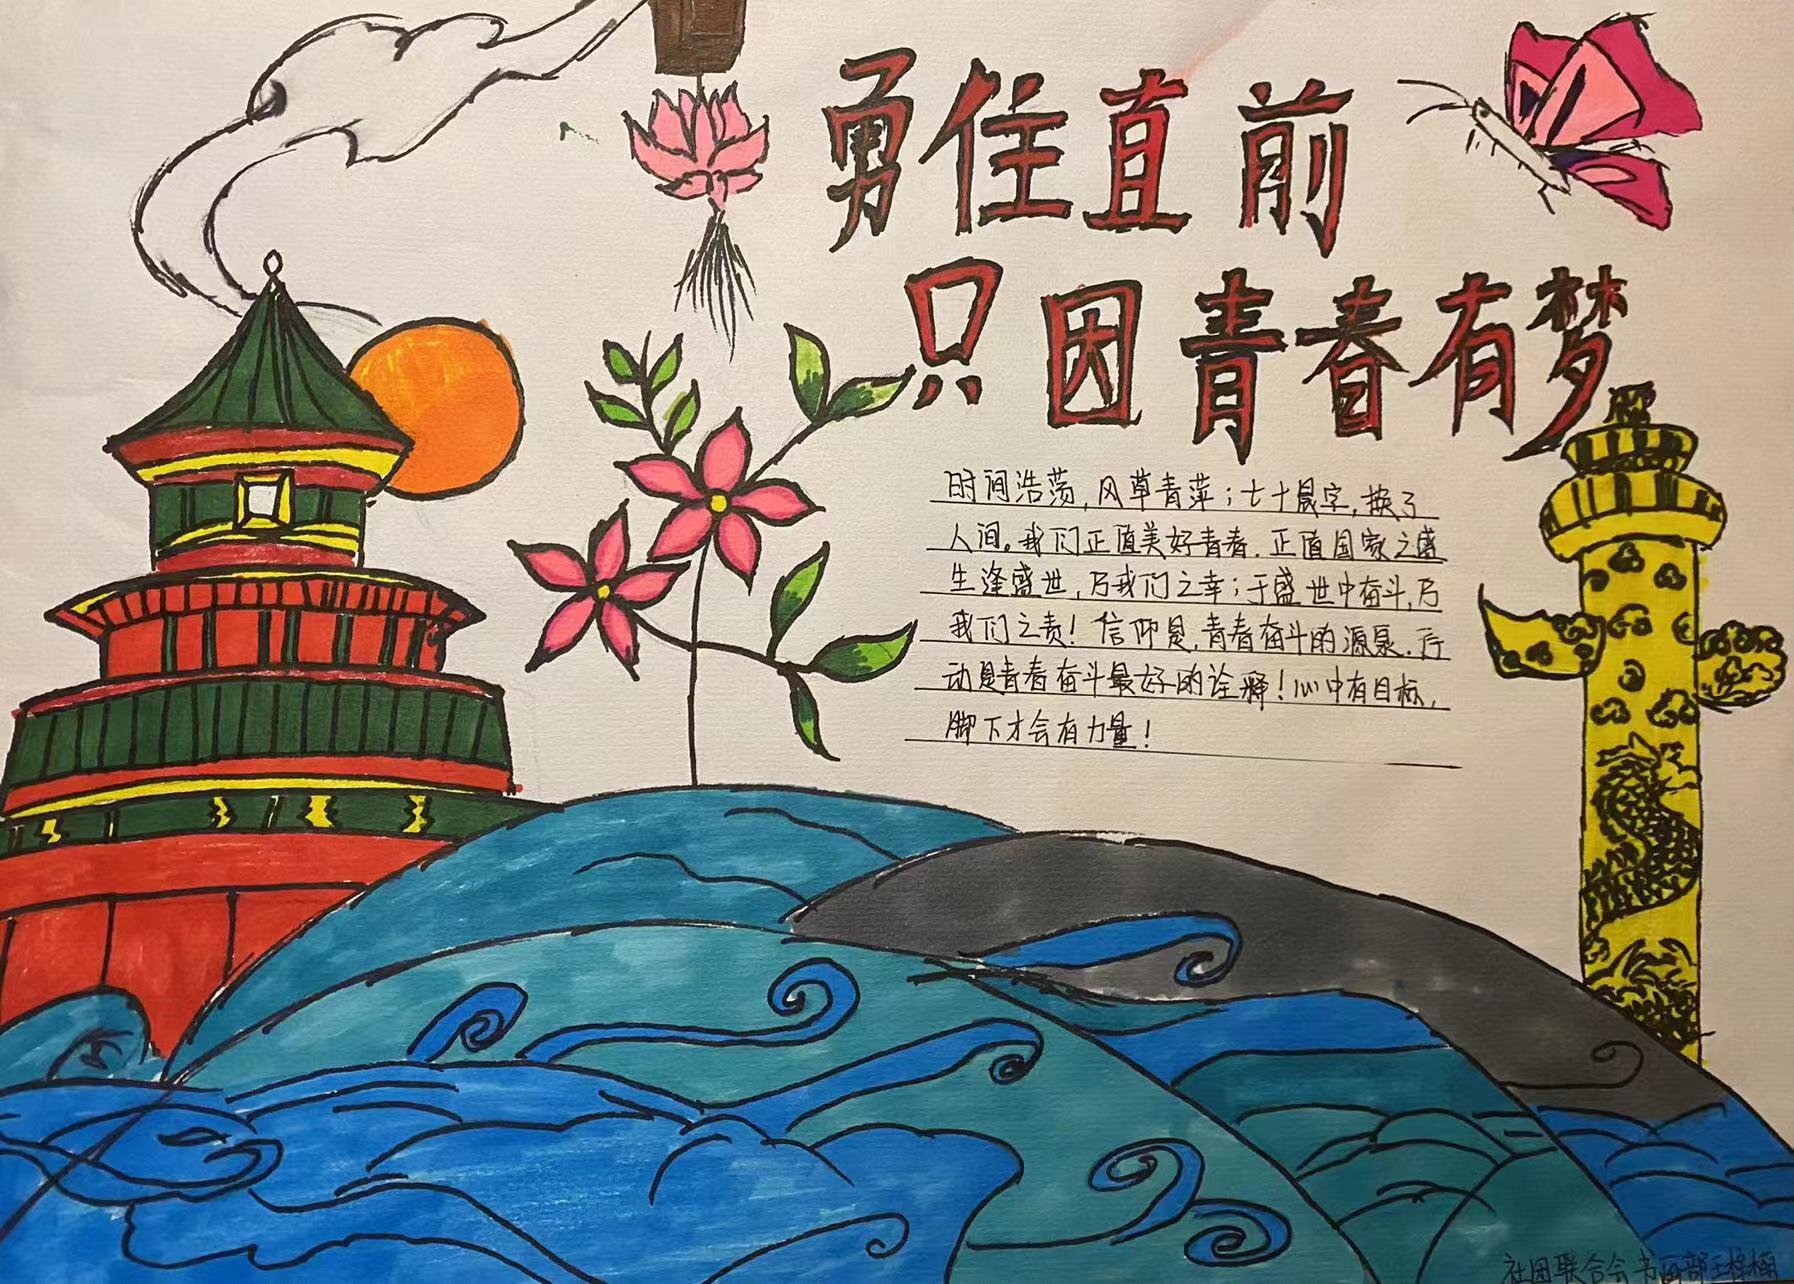 勇住直前
只因青春有梦
时间浩荡,风草青萍;七十晨字,换了
人间。我们正值美好青春.正值国家之盛
生逢盛世,乃我们之幸;于盛世中奋斗,乃
我们之责!信仰是,青春奋斗的源泉.行
动是青春奋斗最好的诠释!心中有目标,
脚下才会有力量!
社团联合会书画部王楠